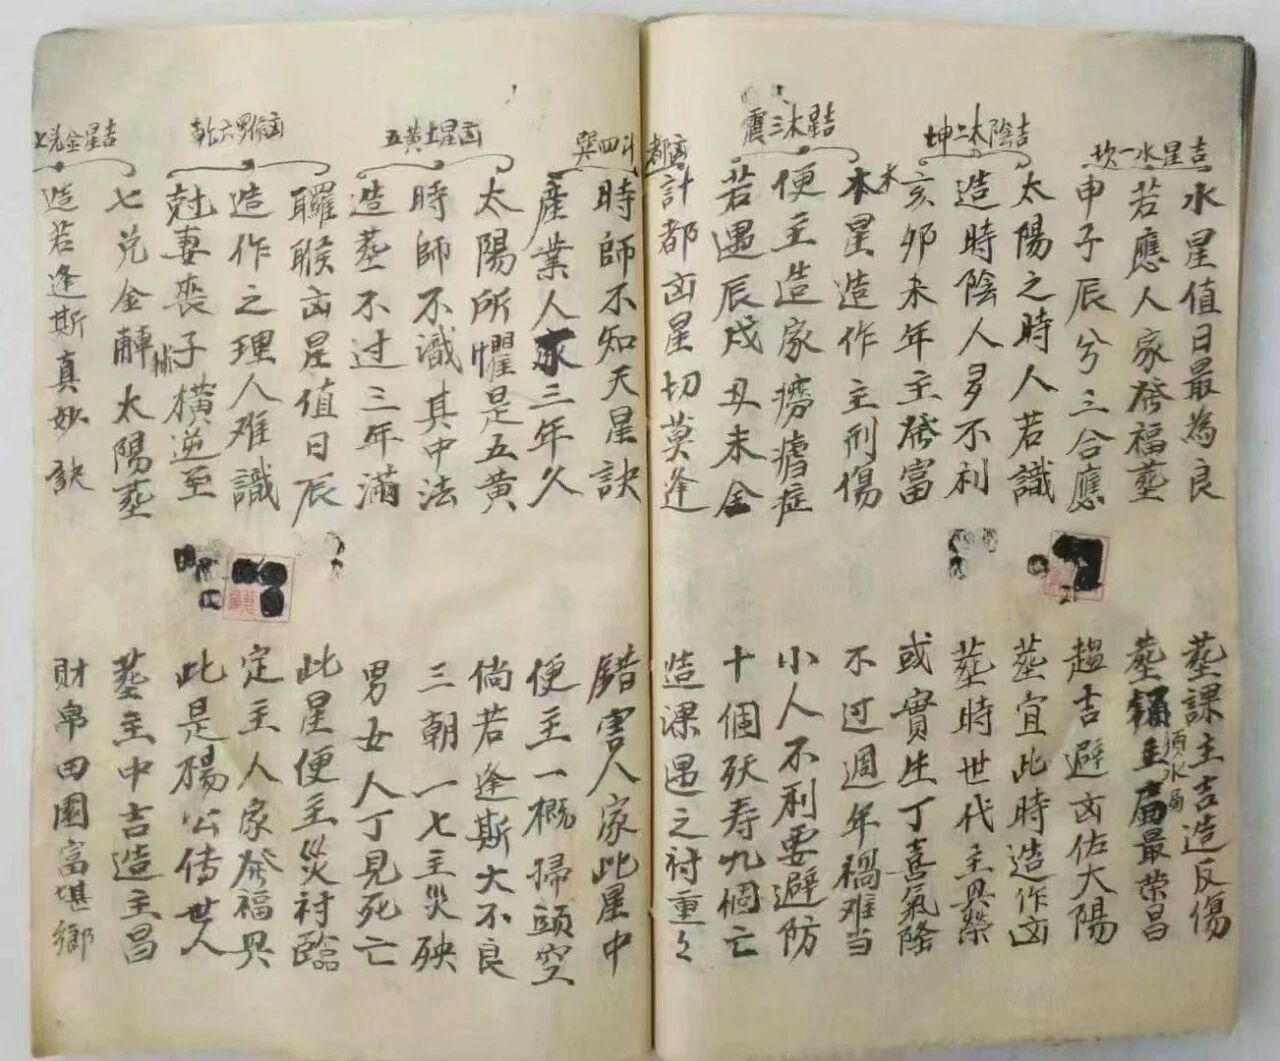 坎一水星吉
水星值日最為良 塟課主吉造反傷
若應人家發福塟 塟須水局主最荣昌
申子辰兮三合應 趨吉避凶佑大陽
坤二木陰吉
太陽之時人若識 塟宜此時造作凶
造時陰人多不利 塟時世代主興榮
亥卯未年主發富 或實生丁喜氣隆
震三木星吉
木星造作主刑傷 不过週年禍难當
便主造家癆瘡症 小人不利要避防
若遇辰戌丑未全 十個殀寿九個亡
巽四斗都凶
計都凶星切莫逢 造课遇之祔重々
時師不知天星訣 錯害人家此星中
產業人永三年久 便主一概掃頭空
五黃土星凶
太陽所懼是五黄 倘若逢斯大不良
時師不識其中法 三朝一七主災殃
造塟不过三年滿 男女人丁見死亡
乾六男脩凶
羅睺凶星值日辰 此星便主災祔臨
造作之理人难識 定主人家發福興
尅妻喪子横逆至 此是楊公传世人
七兌金星吉
七兑金觧太陽塟 塟主中吉造主昌
造若逢斯真妙訣 財帛田園富堪鄉